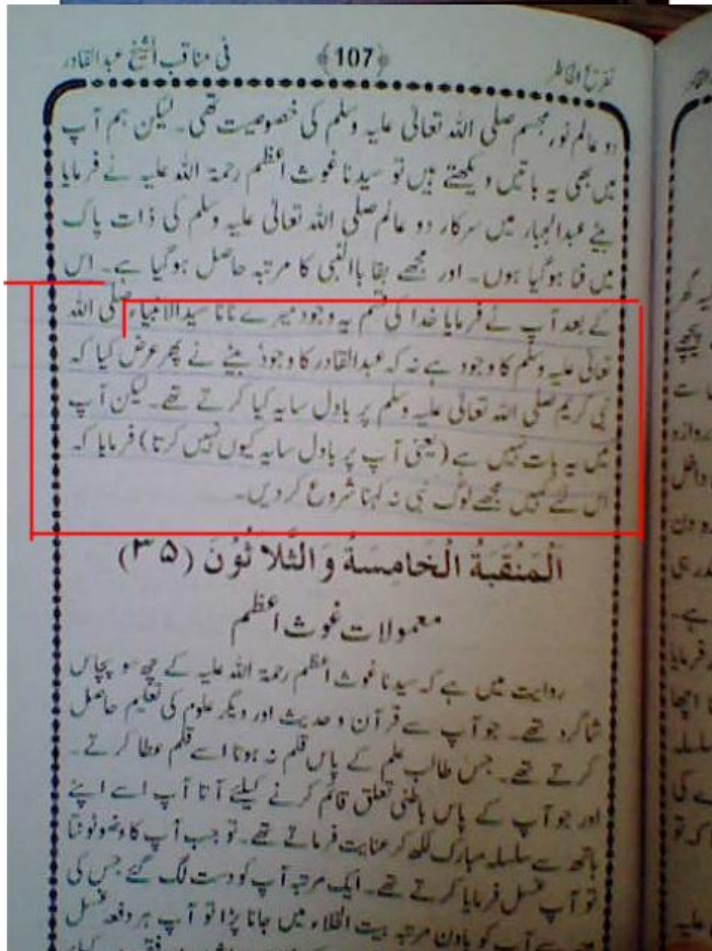 فی مناقب الشیخ عبدالقادر
﴿107﴾
تفریح الخاطر
دو عالم نور مجسم صلی اللہ تعالیٰ علیہ وسلم کی خصوصیت تھی۔ لیکن ہم آپ
میں بھی یہ باتیں دیکھتے ہیں تو سیدنا غوث اعظم رحمۃ اللہ علیہ نے فرمایا
بیٹے عبدالجبار میں سرکار دو عالم صلی اللہ تعالیٰ علیہ وسلم کی ذات پاک
میں فنا ہوگیا ہوں۔ اور مجھے بقا باالنبی کا مرتبہ حاصل ہوگیا ہے۔ اس
کے بعد آپ نے فرمایا خدا کی قسم یہ وجود میرے نانا سیدالانبیاء صلی اللہ
تعالیٰ علیہ وسلم کا وجود ہے نہ کہ عبدالقادر کا وجود بیٹے نے پھر عرض کیا کہ
نبی کریم صلی اللہ تعالیٰ علیہ وسلم پر بادل سایہ کیا کرتے تھے۔ لیکن آپ
میں یہ بات نہیں ہے (یعنی آپ پر بادل سایہ کیوں نہیں کرتا) فرمایا کہ
اس لئے کہیں مجھے لوگ نبی نہ کہنا شروع کردیں۔
اَلْمَنْقَبَةُ الْخَامِسَةُ وَالثَّلَاثُوْنَ (۳۵)
معمولات غوث اعظم
روایت میں ہے کہ سیدنا غوث اعظم رحمۃ اللہ علیہ کے چھ سو پچاس
شاگرد تھے۔ جو آپ سے قرآن و حدیث اور دیگر علوم کی تعلیم حاصل
کرتے تھے۔ جس طالب علم کے پاس قلم نہ ہوتا اسے قلم عطا کرتے۔
اور جو آپ کے پاس باطنی تعلق قائم کرنے کیلئے آتا آپ اسے اپنے
ہاتھ سے سلسلہ مبارک لکھ کر عنایت فرماتے تھے۔ تو جب آپ کا وضو ٹوٹتا
تو آپ غسل فرمایا کرتے تھے۔ ایک مرتبہ آپ کو دست لگ گئے جس کی
آپ کو باون مرتبہ بیت الخلاء میں جانا پڑا تو آپ ہر دفعہ غسل